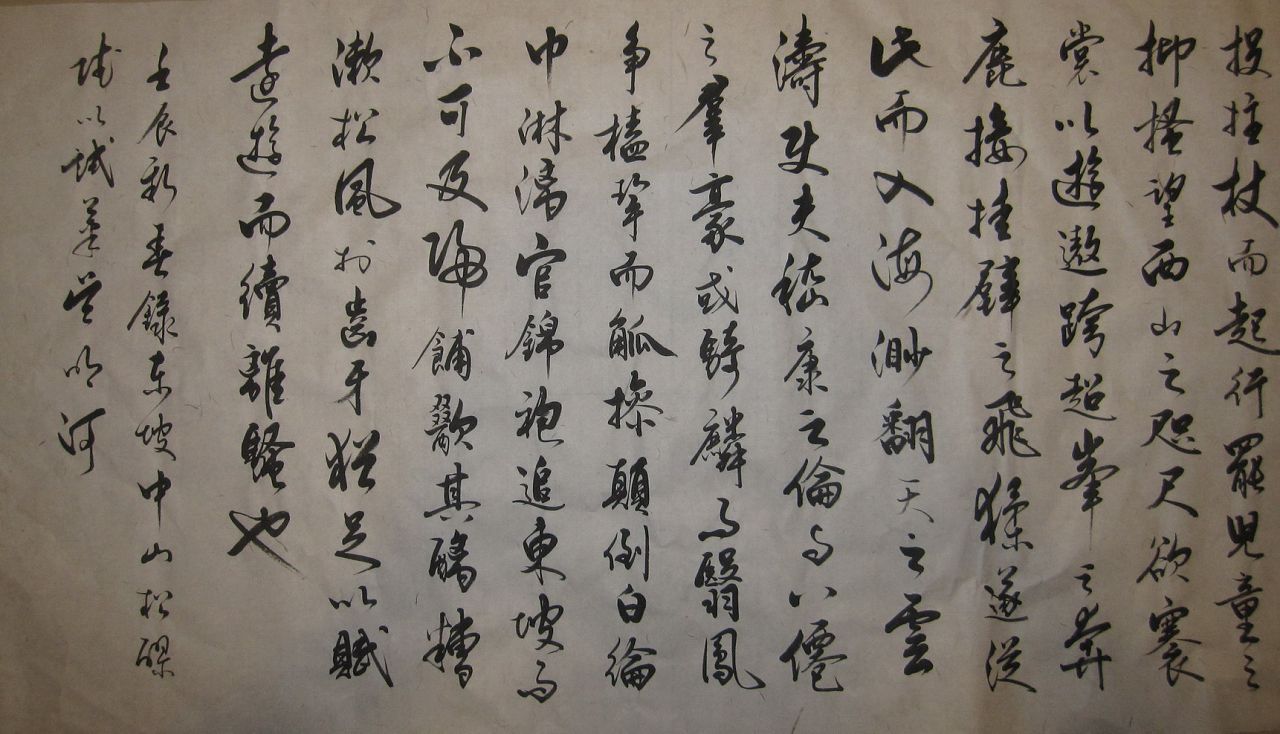 投拄杖而起行罷兒童之
抑搔望西山之咫尺欲褰
裳以遊遨跨超峯之奔
鹿接挂壁之飛猱遂從
此而入海渺翻天之雲
濤使夫嵇康之倫與八僊
之羣豪或騎麟而翳鳳
爭榼挈而瓢操顛倒白綸
巾淋漓宮錦袍追東坡而
不可及歸餔歠其醨糟
漱松風於齒牙猶足以賦
遠遊而續離騷也
壬辰新春錄東坡中山松醪
賦以試筆 明河